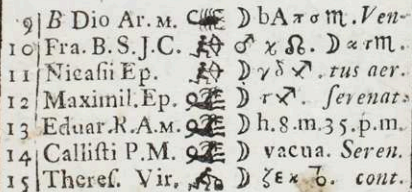 9 B Dio Ar. M. ♏ ☽ b A π σ ♏. Ven-
10 Fra. B. S. J. C. ♐ ♂ χ ☊. ☽ α τ ♏.
11 Nicasii Ep. ♐ ☽ γ δ ♐. tus aer.
12 Maximil. Ep. ♑ ☽ τ ♐. serenat.
13 Eduar. R. A. M. ♑ ☽ h. 8. m. 35. p. m.
14 Callisti P. M. ♑ ☽ vacua. Seren.
15 Theres. Vir. ♒ ☽ ζ ε κ ♑. cont.